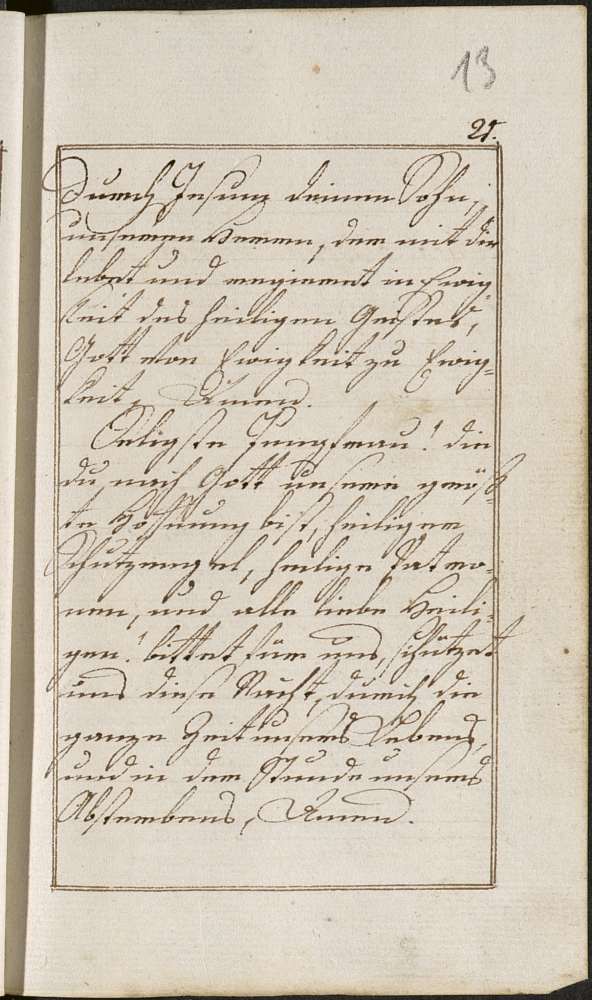 13
21.
Durch Jesum deinen Sohn,
unseren Herren, der mit dir
lebet und regieret in Ewig¬
keit des heiligen Geistes,
Gott von Ewigkeit zu Ewig=
keit, Amen.
Seligste Jungfrau! die
du nach Gott unsere größ¬
te Hofnung bist, heiliger
Schutzengel, heilige Patro¬
nen, und alle liebe Heili¬
gen! bittet für uns, schützet
uns diese Nacht, durch die
ganze Zeit unsers Lebens,
und in der Stunde unsers
Absterbens, Amen.